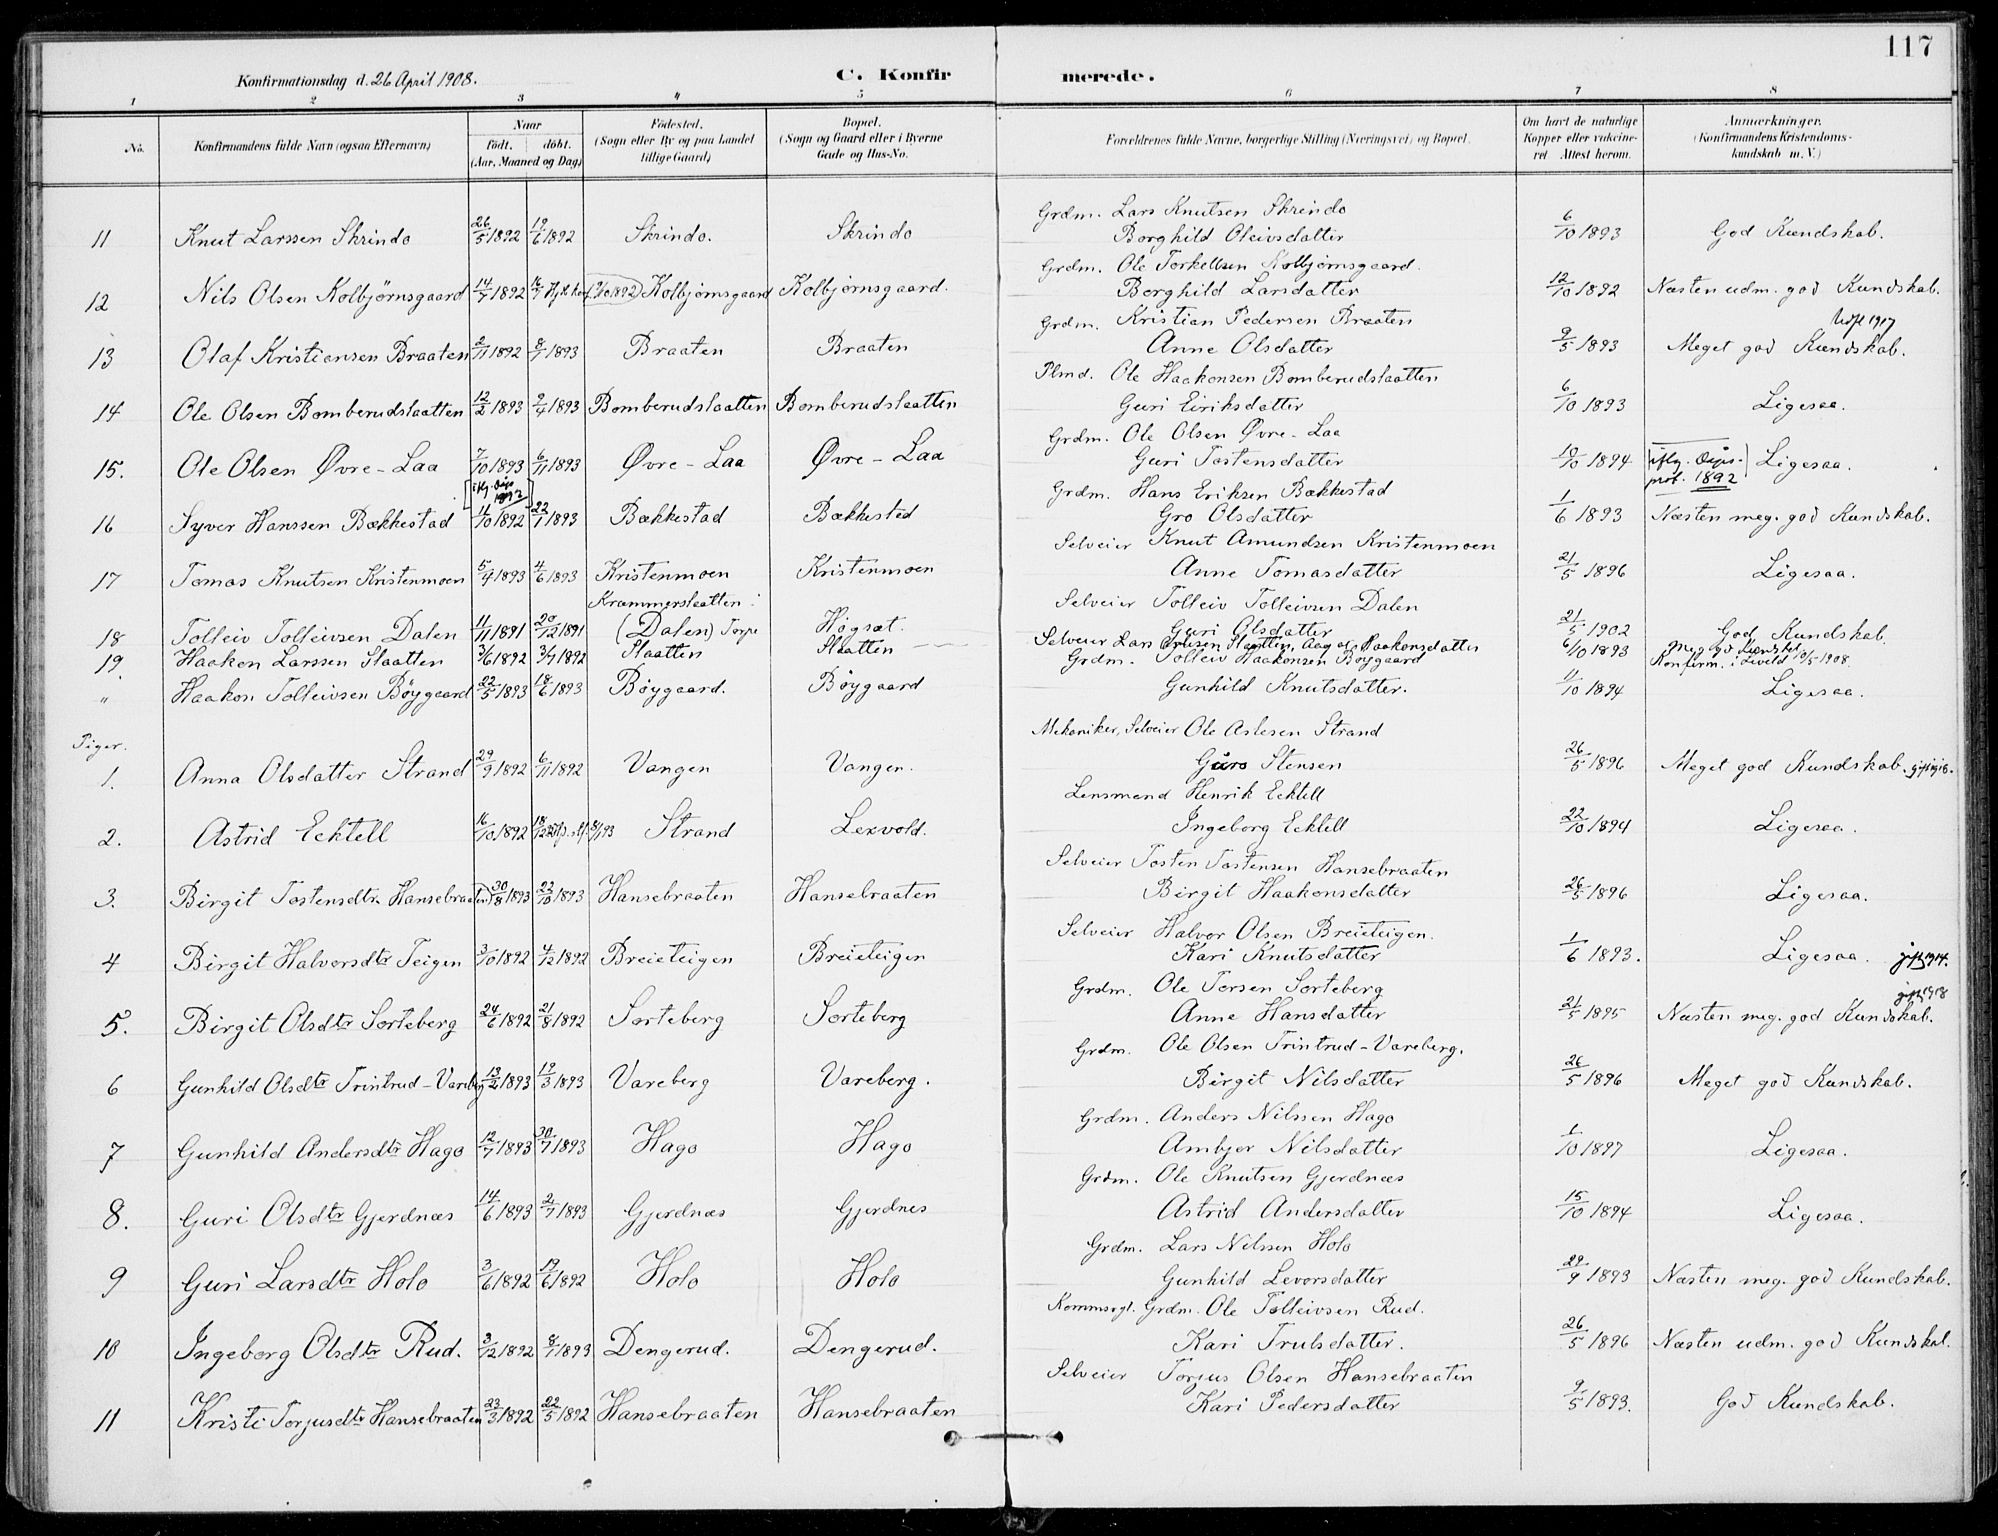 117
Konfirmationsdag d. 26 April 1908. C. Konfirmerede.
1 2 3 4 5 6 7 8
No. Konfirmandens fulde Navn (ogsaa Efternavn) Naar født. døbt. (Aar, Maaned og Dag) Fødested. (Sogn eller By og paa Landet tillige Gaard) Bopæl. (Sogn og Gaard eller i Byerne Gade og Hus-No. Forældrenes fulde Navne, borgerlige Stilling (Næringsvei) og Bopæl. Om havt de naturlige Kopper eller vakcineret. Attest herom. Anmærkninger. (Konfirmandens Kristendomskundskab m. V.)
Grdm. Lars Knutsen Skrindo
11 Knut Larssen Skrindo 26/5 1892 19/6 1892 Skrindo. Skrindo Borghild Oleivsdatter 6/10 1893 God Kundskab.
Grdm. Ole Torkellsen Kolbjørnsgaard.
12 Nils Olsen Kolbjørnsgaard 14/7 1892 Kolbjørnsgaard Kolbjørnsgaard. Borghild Larsdatter 12/10 1892 Næsten udm. god Kundskab.
Grdm. Kristian Pedersen Braaten Udfl 1917
13 Olaf Kristiansen Braaten 2/11 1892 8/1 1893 Braaten Braaten Anne Olsdatter 9/5 1893 Meget god Kundskab.
Plmd. Ole Haakonsen Bomberudslaatten
14 Ole Olsen Bomberudslaatten 12/2 1893 2/4 1893 Bomberudslaatten Bomberudslaatten Guri Eiriksdatter 6/10 1893 Ligesaa.
Grdm. Ole Olsen Øvre-Laa
15. Ole Olsen Øvre-Laa 7/10 1893 6/11 1893 Øvre-Laa Øvre-Laa Guri Tostensdatter 10/10 1894 Ligesaa.
1892
Grdm. Hans Eriksen Bækkestad
16 Syver Hanssen Bækkestad 11/10 1892 22/1 1893 Bækkestad Bækkestad Gro Olsdatter 1/6 1893 Næsten meg. god Kundskab.
Selveier Knut Amundsen Kristenmoen
17 Tomas Knutsen Kristenmoen 5/4 1893 4/6 1893 Kristenmoen Kristenmoen Anne Tomasdatter 21/5 1896 Ligesaa.
Krammerslaatten Selveier Tolleiv Tolleivsen Dalen
18 Tolleiv Tolleivsen Dalen 11/11 1891 20/12 1891 (Dalen) Torpe Høgsæt. Guri Olsdatter 21/5 1902 God Kundskab.
19. Haakon Larssen Slaatten 3/6 1892 3/7 1892 Slaatten Slaatten Selveier Lars Slaatten, Haakonsdatter 6/10 1893 Meg. god Kundskab
Grdm. Tolleiv Haakonsen Bøygaard Konfirm. i Leveld 10/5 1908.
" Haakon Tolleivsen Bøygaard 22/5 1893 18/6 1893 Bøygaard. Bøygaard Gunhild Knutsdatter. 11/10 1894 Ligesaa.
Piger. Mekaniker, Selveier Ole Aslesen Strand
1. Anna Olsdatter Strand 29/9 1892 6/11 1892 Vangen Vangen. Guro Stensen 26/5 1896 Meget god Kundskab.
Lensmand Henrik Ecktell
2. Astrid Ecktell 16/10 1892 Strand Lexvold. Ingeborg Ecktell 22/10 1894 Ligesaa.
Selveier Tosten Tostensen Hansebraaten
3. Birgit Tostensdtr. Hansebraaten 30/8 1893 22/10 1893 Hansebraaten Hansebraaten Birgit Haakonsdatter 26/5 1896 Ligesaa.
Selveier Halvor Olsen Breieteigen.
4 Birgit Halvorsdtr Teigen 3/10 1892 4/12 1892 Breieteigen Breieteigen Kari Knutsdatter 1/6 1893. Ligesaa. gift 1914.
Grdm. Ole Torsen Sorteberg gift 1918
5. Birgit Olsdtr Sorteberg 24/6 1892 21/8 1892 Sorteberg Sorteberg Anne Hansdatter 21/5 1895 Næsten meg. god Kundskab.
Grdm. Ole Olsen Trintrud-Vareberg.
6 Gunhild Olsdtr Trintrud-Vareberg 13/2 1893 19/3 1893 Vareberg Vareberg. Birgit Nilsdatter 26/5 1896 Meget god Kundskab.
Grdm. Anders Nilssen Hago
7 Gunhild Andersdtr Hago 12/7 1893 30/7 1893 Hago Hago Ambjør Nilsdatter 1/10 1897 Ligesaa.
Grdm. Ole Knutsen Gjerdnæs
8. Guri Olsdtr Gjerdnæs 14/6 1893 2/7 1893 Gjerdnæs Gjerdnes Astrid Andersdatter 15/10 1894 Ligesaa.
Grdm. Lars Nilssen Holo
9 Guri Larsdtr Holo 3/6 1892 19/6 1892 Holo Holo Gunhild Levorsdatter 29/9 1893 Næsten meg. god Kundskab.
Grdm. Ole Tolleivsen Rud.
10 Ingeborg Olsdtr Rud. 3/12 1892 8/1 1893 Dengerud. Dengerud. Kari Trulsdatter. 26/5 1896 Næsten udm. god Kundskab.
Selveier Torjus Olsen Hansebraaten
11 Kristi Torjusdtr Hansebraaten 23/3 1892 22/5 1892 Hansebraaten Hansebraaten Kari Pedersdatter 9/5 1893. God Kundskab.